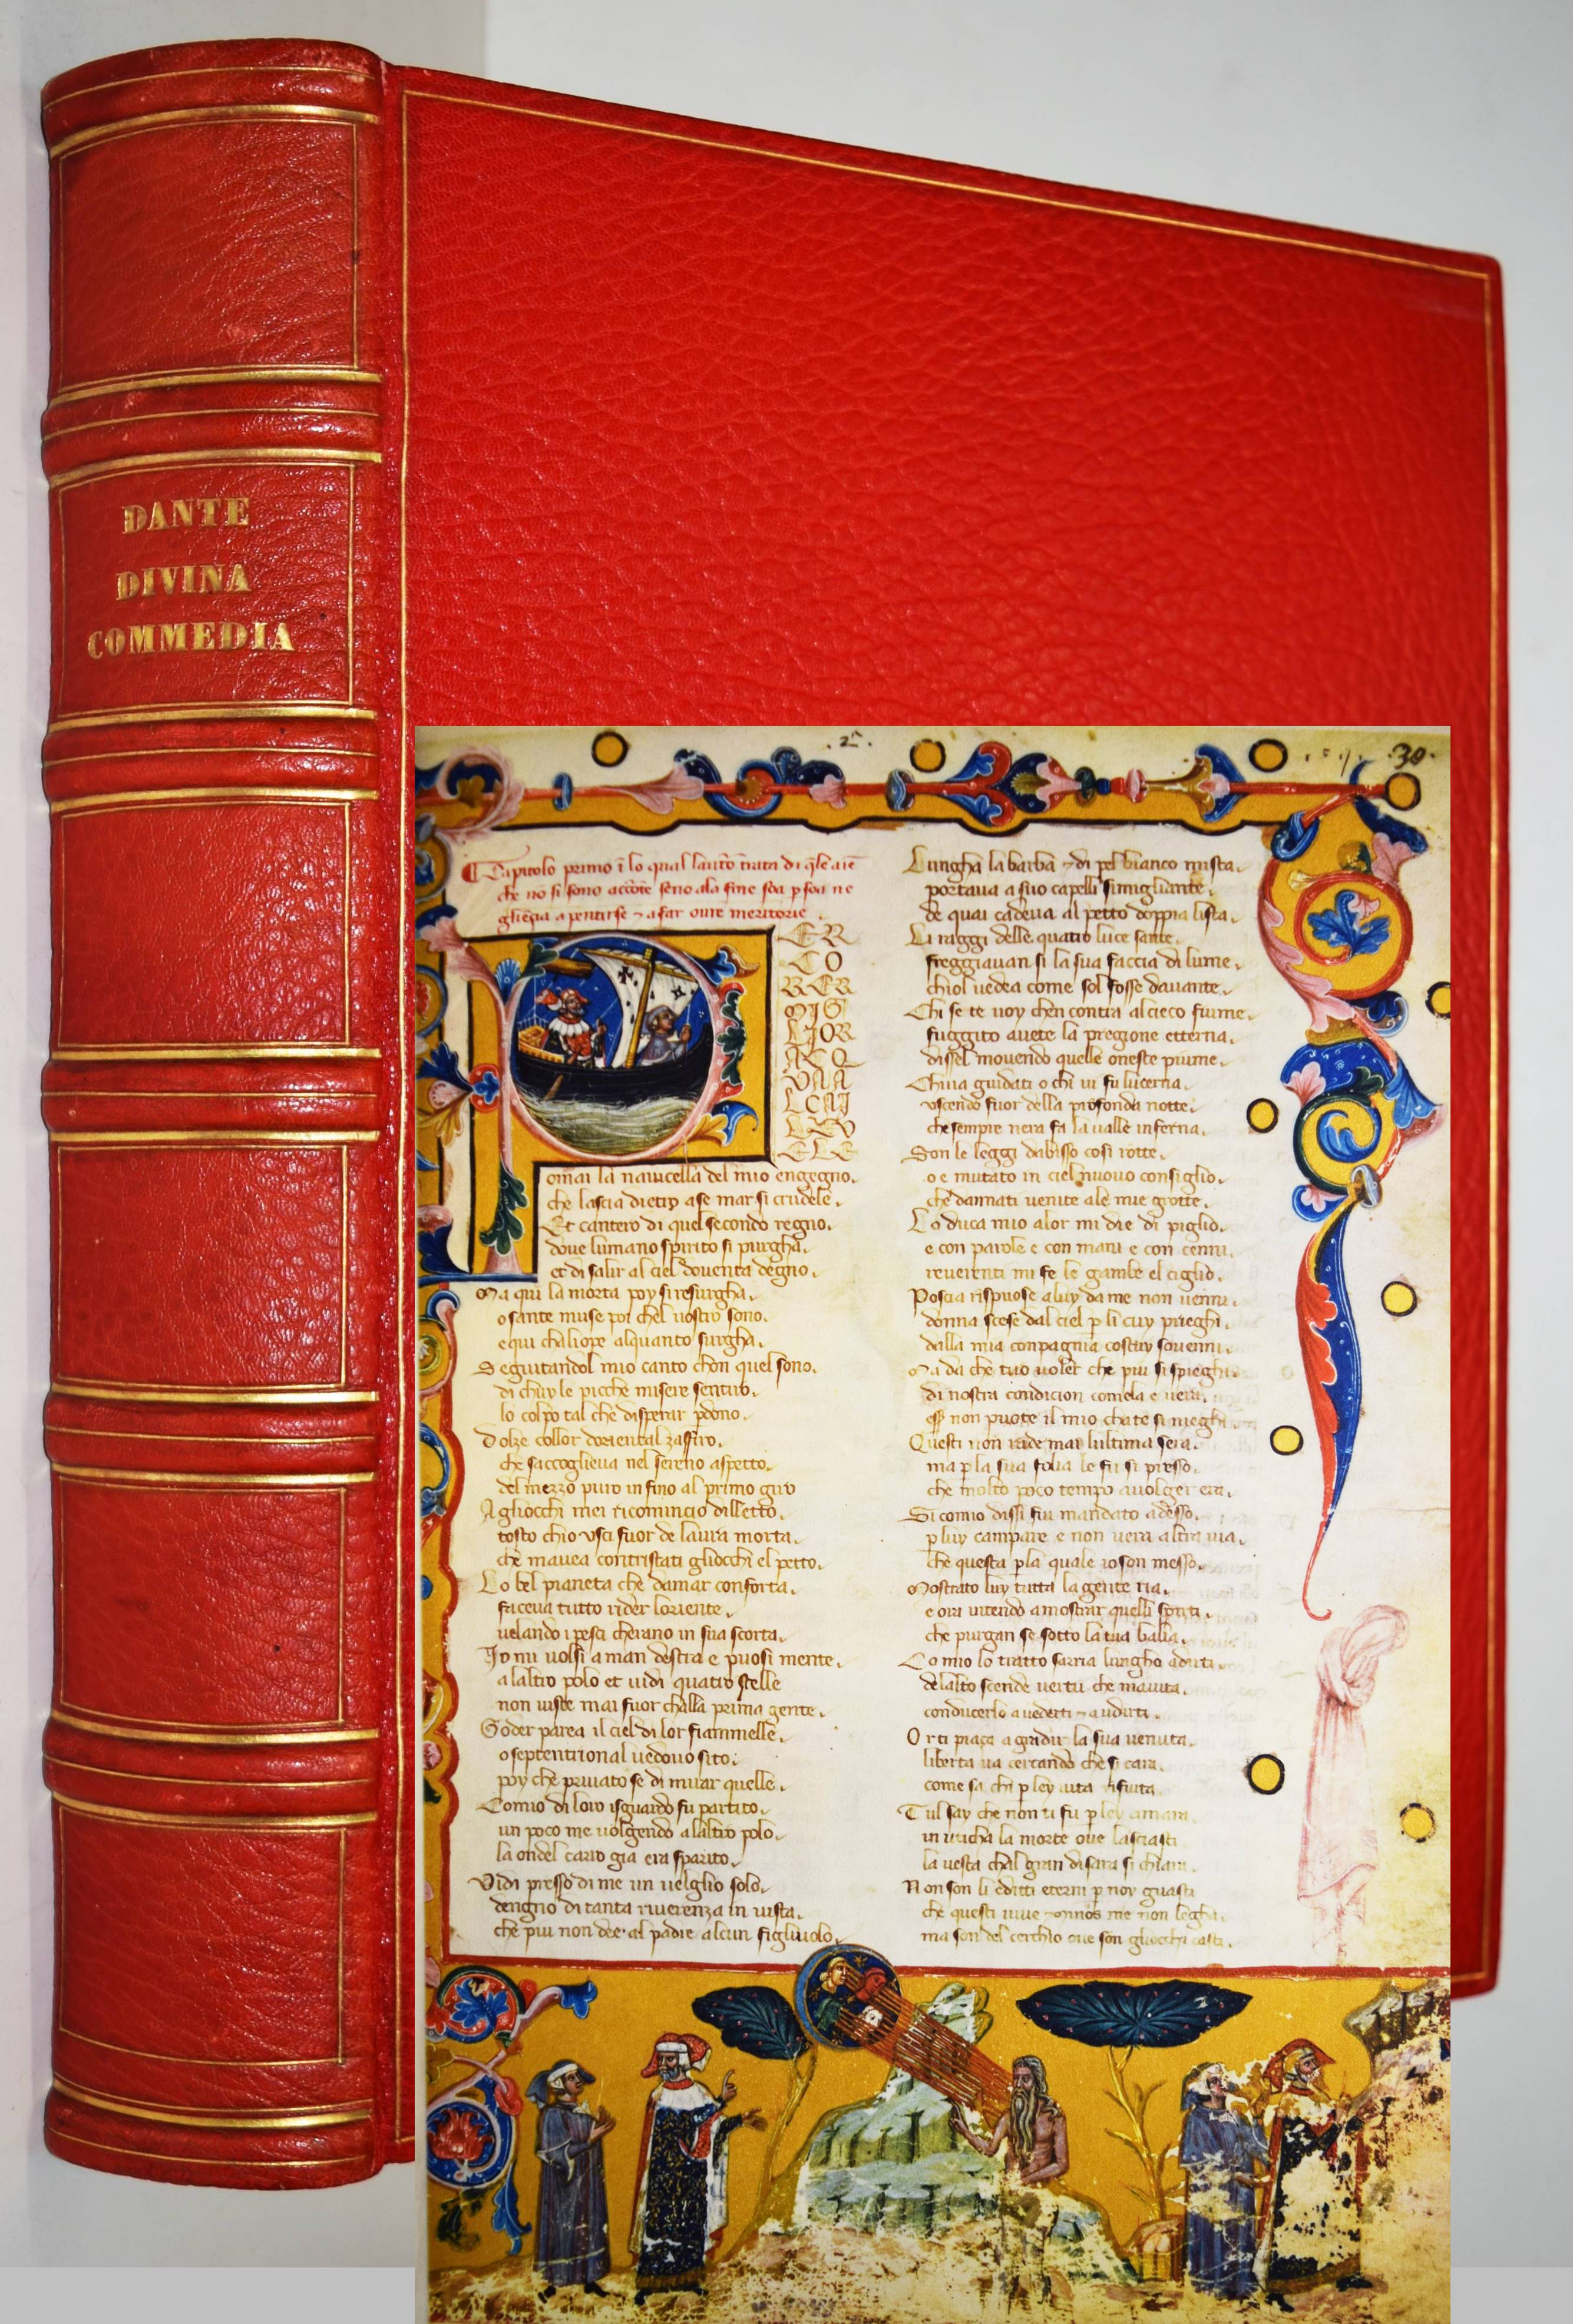 DANTE
DIVINA
COMMEDIA
.2ª.
30.
Capitolo primo
che nō si fono
ER
CO
RER
MIG
LIOR
ACQ
VAA
LCAI
LEV
ELE
omai la nauicella del mio engegno.
che lascia dietro ase mar si crudele.
Et cantero di quel secondo regno.
doue lumano spirito si purgha.
et di salir al ciel douenta degno.
Ma qui la morta poy si resurgha.
o sante muse poi chel uostro sono.
e qui chaliope alquanto surgha.
Seguitandol mio canto chon quel sono.
di chuy le picche misere sentiro.
lo colpo tal che disperar pdono.
Dolze collor doriental zaffiro.
che saccoglieua nel sereno aspetto.
del mezzo puro infino al primo giro
Agliocchi mei ricomincio dilletto.
tosto chio usci fuor de laura morta.
che mauea contristati gliocchi el petto.
Lo bel pianeta che damar conforta.
faceua tutto rider loriente.
uelando i pesci cherano in sua scorta.
Io mi uolsi a man destra e puosi mente.
alaltro polo et uidi quatro stelle
non uiste mai fuor challa prima gente.
Goder parea il ciel di lor fiammelle.
o septentrional uedouo sito.
poy che priuato se di mirar quelle.
Comio di loro isguardo fu partito.
un poco me uolgendo alaltro polo.
la ondel carro gia era sparito.
Vidi presso di me un uelglio solo.
dengno di tanta riuerenza in uista.
che piu non dee al padre alcun figliuolo.
Lungha la barba ⁊ di pel bianco mista.
portaua a suo capelli simigliante.
de quai cadeua al petto doppia lista.
Li raggi delle quatro luce sante.
freggiauan si la sua faccia di lume.
chiol uedea come sol fosse dauante.
Chi se te uoy chen contra al cieco fiume.
fuggito auete la pregione etterna.
dissel mouendo quelle oneste piume.
Chi ua guidati o chi ui fu lucerna.
uscendo fuor della profonda notte.
che sempre nera fa la ualle inferna.
Son le leggi dabisso cosi rotte.
o e mutato in ciel nuouo consiglio.
che dannati uenite ale mie grotte.
Lo duca mio alor mi die di piglio.
e con parole e con mani e con cenni.
reuerenti mi fe le gambe el ciglio.
Poscia rispuose a luy da me non uenni.
donna scese dal ciel p li cuy prieghi.
dalla mia conpagnia costuy souenni.
Ma da che tuo uoler che piu si spieghi.
di nostra condicion comela e uera.
non puote il mio cha te si nieghi.
Questi non uide mai lultima sera.
ma p la sua folia le fu si presso.
che molto poco tempo auolger era.
Si comio dissi fui mandato adesso.
p luy campare e non uera altra uia.
che questa p la quale io son messo.
Mostrato luy tutta la gente ria.
e ora intendo amostrar quelli spirti.
che purgan se sotto la tua balia.
Comio lo tratto
delalto scende uertu che mauita.
conducerlo a uederti ⁊ audirti.
Or ti piaça a gradir la sua uenuta.
liberta ua cercando che si cara.
come sa chi p ley uita rifiuta.
Tul say che non ti fu p ley amara.
in uticha la morte oue lasciasti
la uesta chal gran di sara si chiara.
Non son li editti eterni p noy guasti
che questi uiue ⁊ minos me non legha.
ma son del cerchio oue son gliocchi casti.